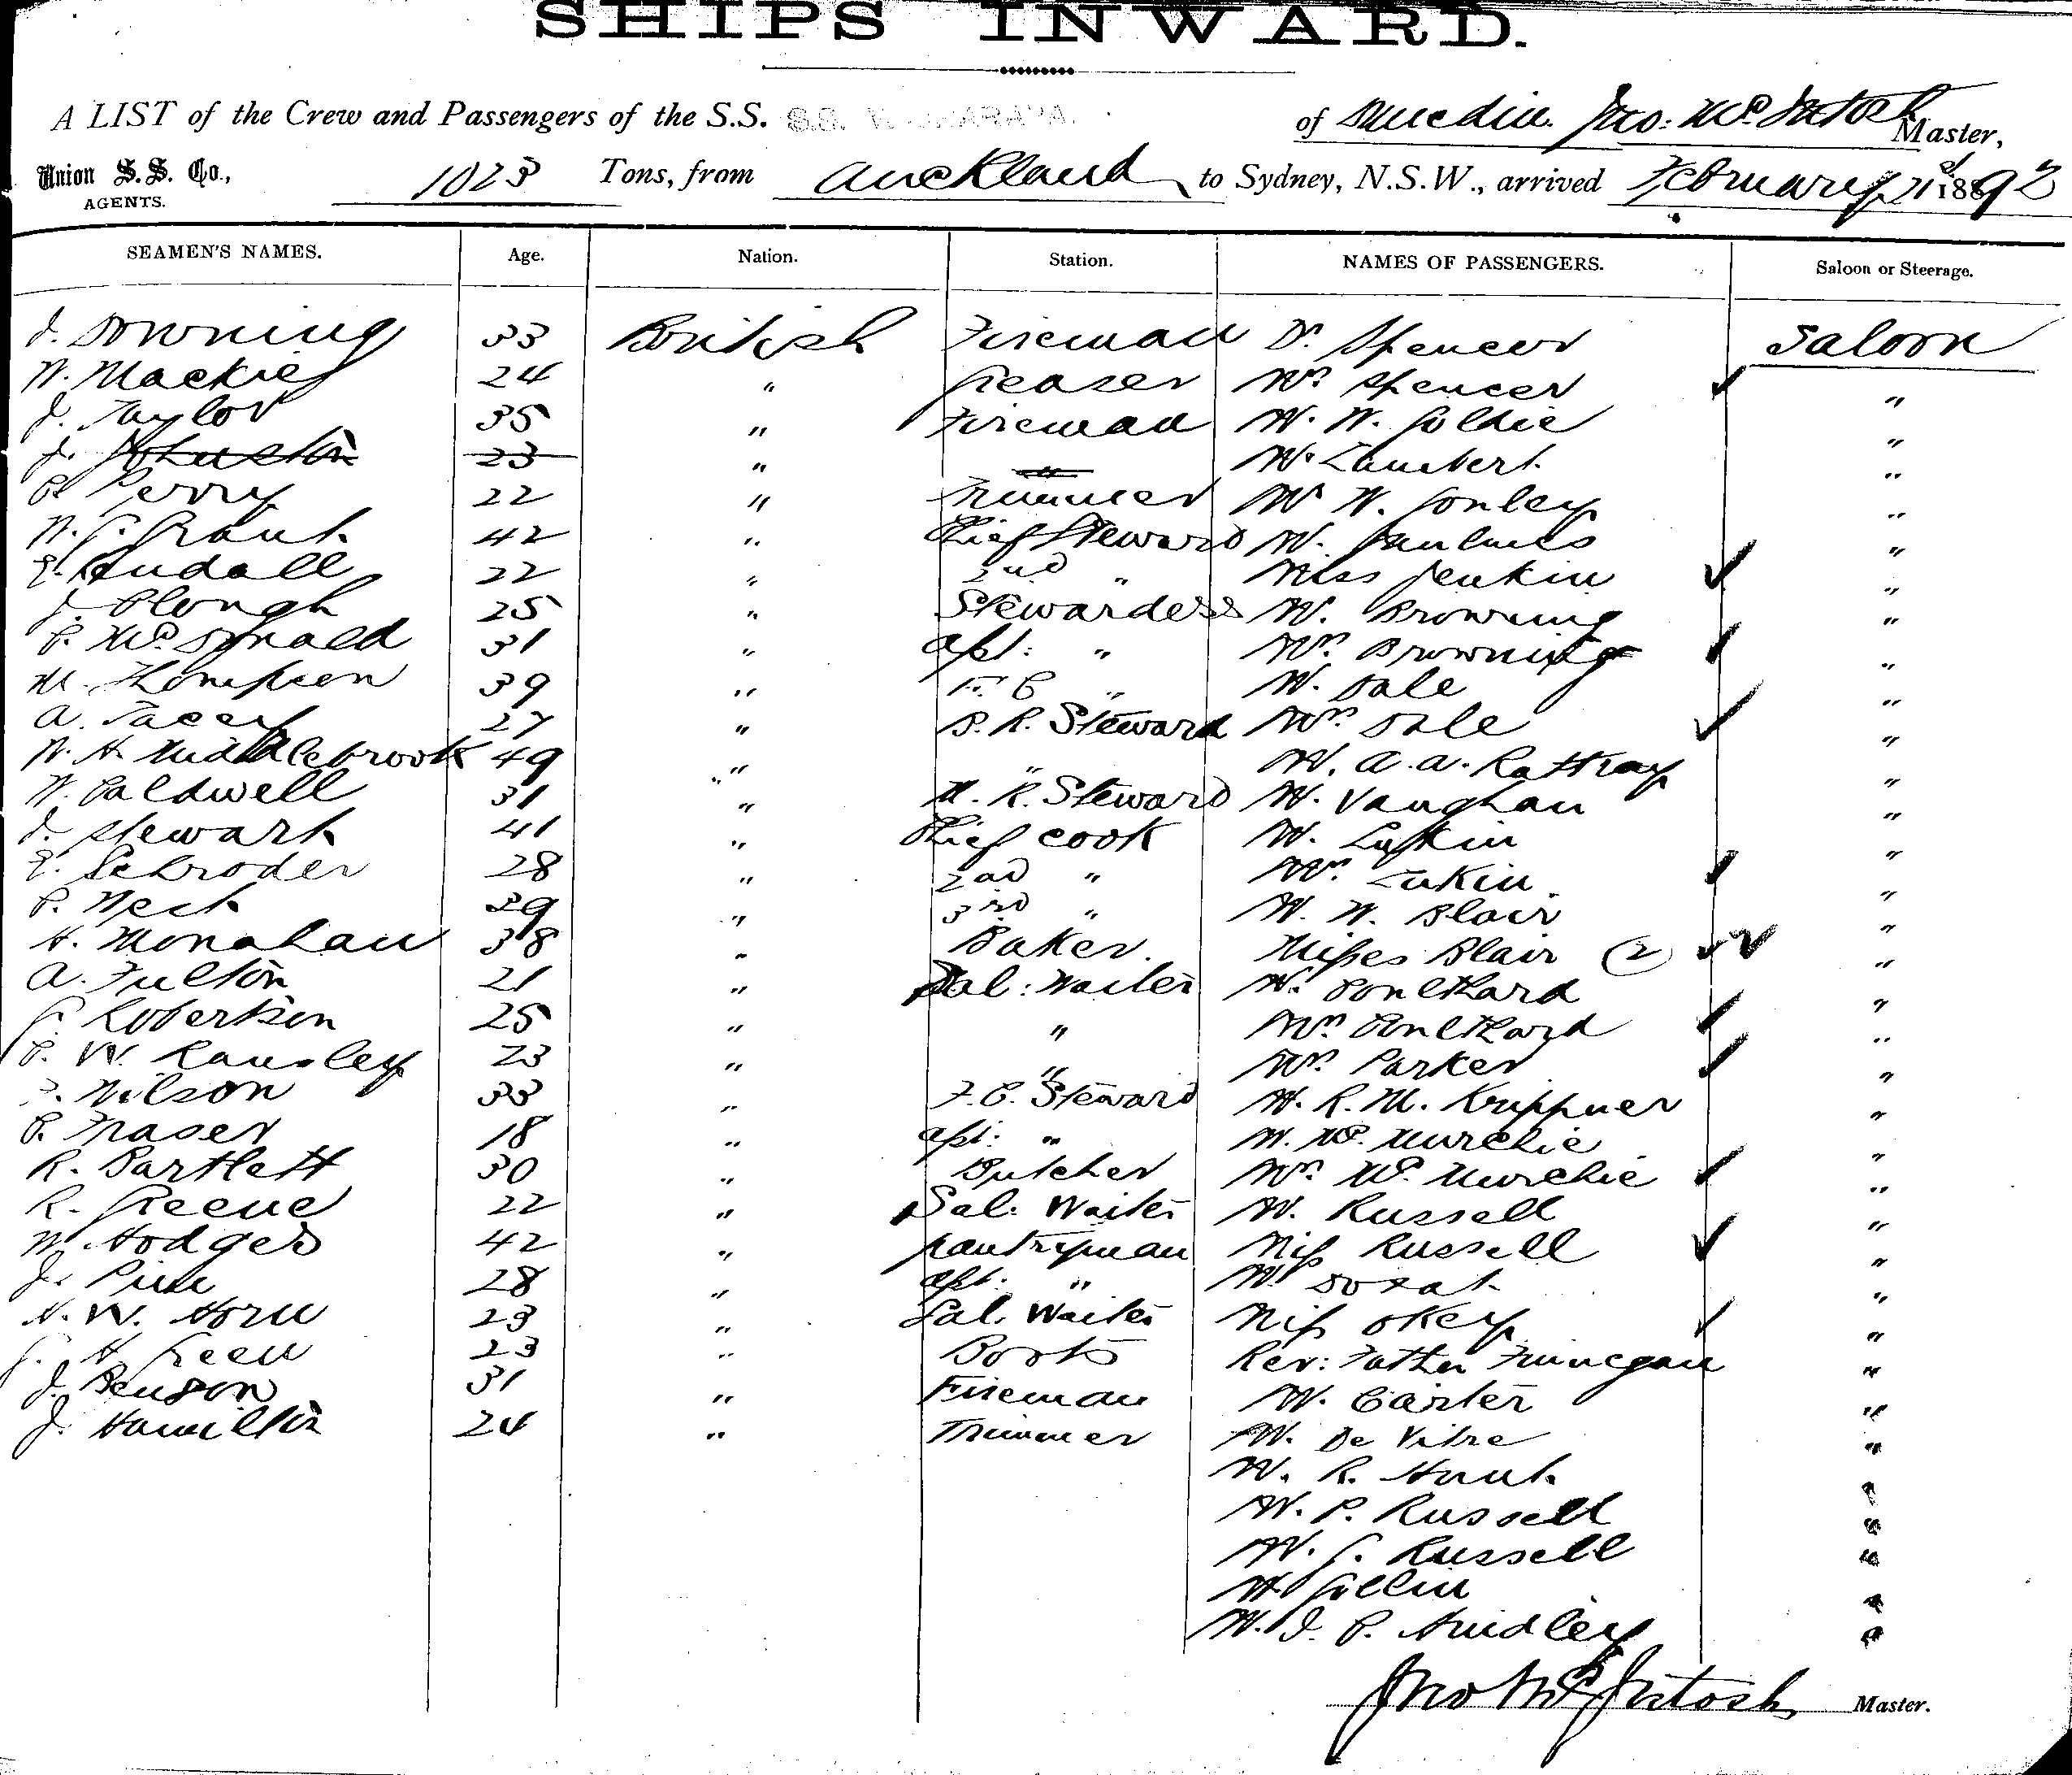 SHIPS INWARD.
A LIST of the Crew and Passengers of the S.S. S.S. WAKARAPA. of Dunedin. Jno: McIntosh Master,
Union S. S. Co., AGENTS. 1023 Tons, from Auckland to Sydney, N.S.W., arrived February 1st 1892
SEAMEN'S NAMES. Age. Nation. Station. NAMES OF PASSENGERS. Saloon or Steerage.
J. Downing 33 British Fireman Dr. Spencer Saloon
W. Mackie 24 " Greaser Mrs Spencer "
J. Taylor 35 " Fireman Mr. W. Goldie "
J. Johnston 23 " " Mr Lambert "
Perry 22 " Trimmer Mr W. Gonley "
W. G. Grant 42 " Chief Steward Mr.
E. Rendall 22 " 2nd " Miss Jenkin "
J. Clough 25 " Stewardess Mr. Browning "
C. McDonald 31 " asst: " Mrs Browning "
M. Thompson 39 " F. C " Mr. Dale "
A. Tacey 27 " B. R. Steward Mrs Dale "
W. H. Middlebrook 49 " " Mr. A. A. Rattray "
W. Caldwell 31 " M. R. Steward Mr. Vaughan "
J. Stewart 41 " Chief Cook Mr. Lakin "
E. Schroder 28 " 2nd " Mrs Lakin. "
P. 39 " 3rd " Mr. W. Blair "
H. Monahan 38 " Baker. Misses Blair (2) "
A. Fulton 21 " Sal: Waiter Mr. Coulthard "
G. Robertson 25 " " Mrs Coulthard "
C. W. Ransley 23 " " Mrs Parker "
Wilson 33 " F. C. Steward Mr. R. M. Krippner "
C. Fraser 18 " asst: " Mr. McMurchie "
R. Bartlett 30 " Butcher Mrs McMurchie "
R. Greene 22 " Sal: Waiter Mr. Russell "
W. Hodges 42 " Pantryman Miss Russell "
J. Pine 28 " asst: " Mr "
W. Horn 23 " Sal. Waiter Miss Okey "
G. H. Green 23 " Boots Rev: Father Finnegan "
J. Benson 31 " Fireman Mr. Carter "
J. Hamilton 24 " Trimmer Mr. De Vitre "
Mr. R. Hunt. "
Mr. P. Russell "
Mr. G. Russell "
Mr Gollin "
Mr. J. C. Hindley "
Jno McIntosh Master.